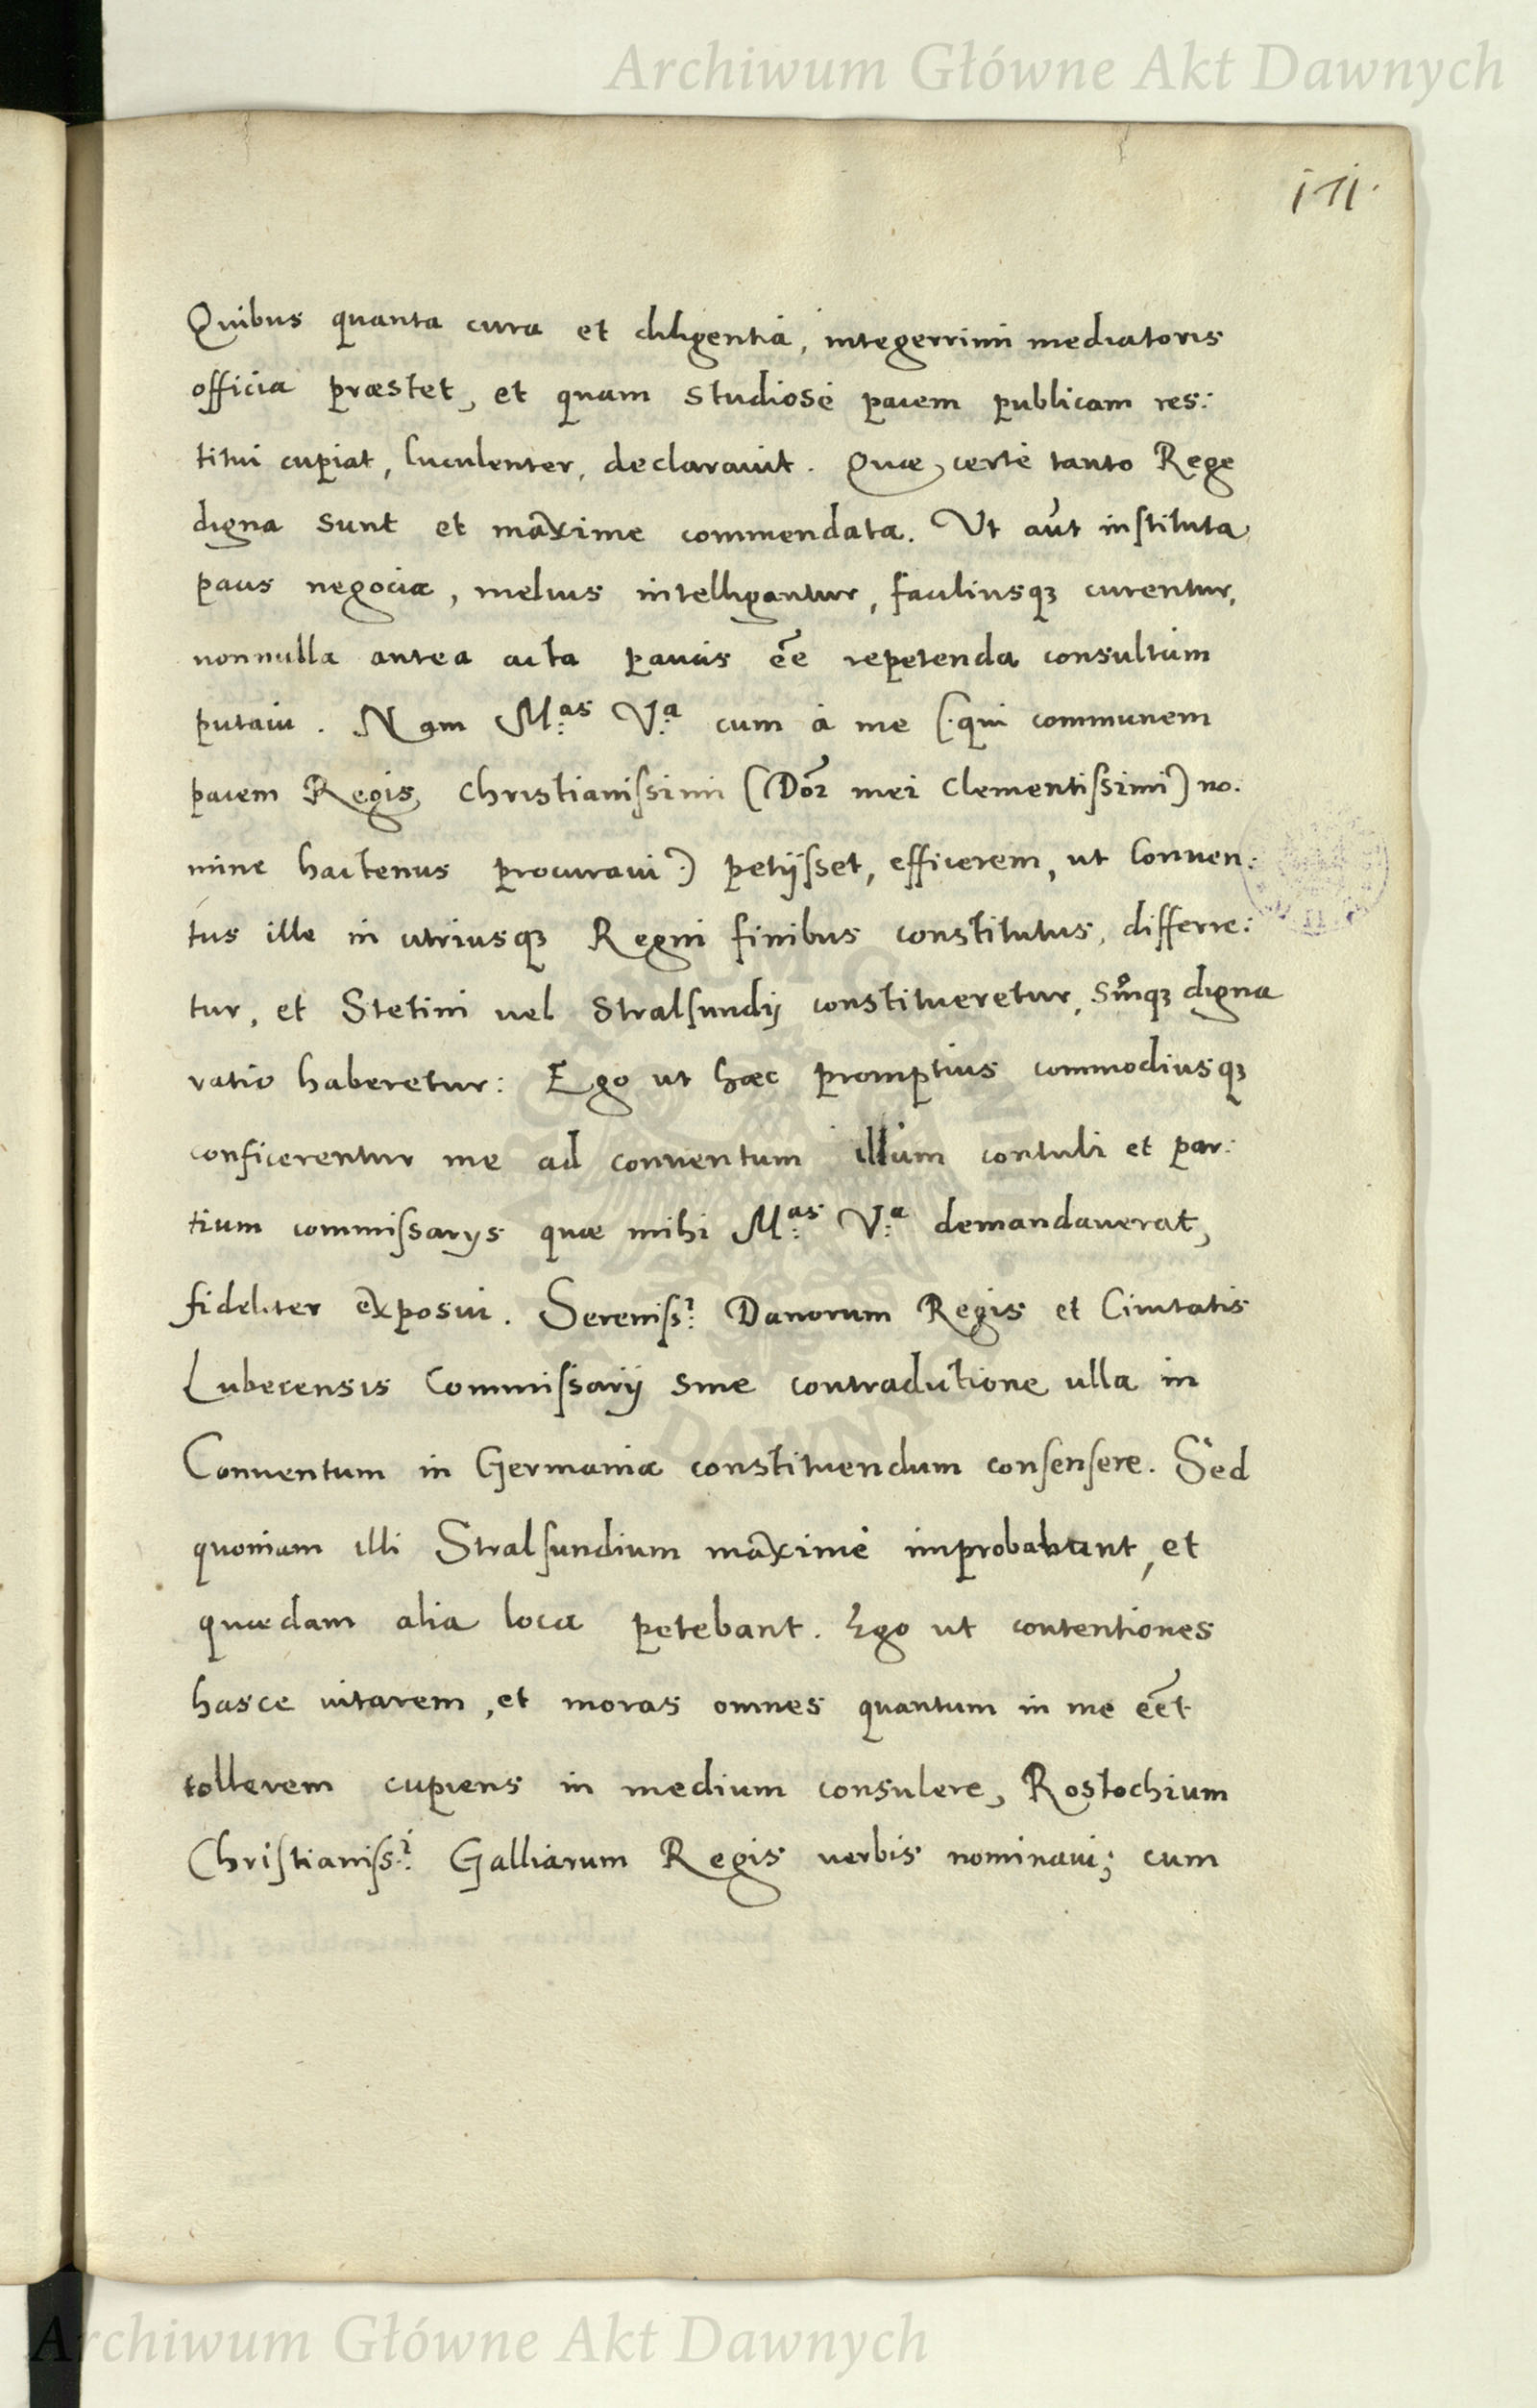 Archiwum Główne Akt Dawnych
171.
Quibus quanta cura et diligentia, integerrimi mediatoris
officia præstet, et quam studiosè pacem publicam res:
titui cupiat, luculenter, declarauit. Quæ certè tanto Rege
digna sunt et maxime commendata. Vt aūt instituta
pacis negocia, melius intelligantur, faciliusqꝫ curentur,
nonnulla antea acta paucis eē̄ repetenda consultum
putaui. Nam M:as V:a cum à me (:qui communem
pacem Regis Christianissimi (Doī mei Clementissimi) no:
mine hactenus procuraui:) petijsset, efficerem, ut Conuen:
tus ille in utriusqꝫ Regni finibus constitutus, differre:
tur, et Stetini uel Stralsundij constitueretur, suīqꝫ digna
ratio haberetur: Ego ut hæc promptius commodiusqꝫ
conficerentur me ad conuentum illum contuli et par:
tium commissarys quæ mihi M:as V:a demandauerat,
fideliter exposui. Sereniss:i Danorum Regis et Ciuitatis
Lubecensis Commissarij sine contradictione ulla in
Conuentum in Germania constituendum consensere. Sed
quoniam illi Stralsundium maximè improbabant, et
quædam alia loca petebant. Ego ut contentiones
hasce uitarem, et moras omnes quantum in me eēt
tollerem cupiens in medium consulere, Rostochium
Christianiss:i Galliarum Regis uerbis nominaui; cum
Archiwum Główne Akt Dawnych